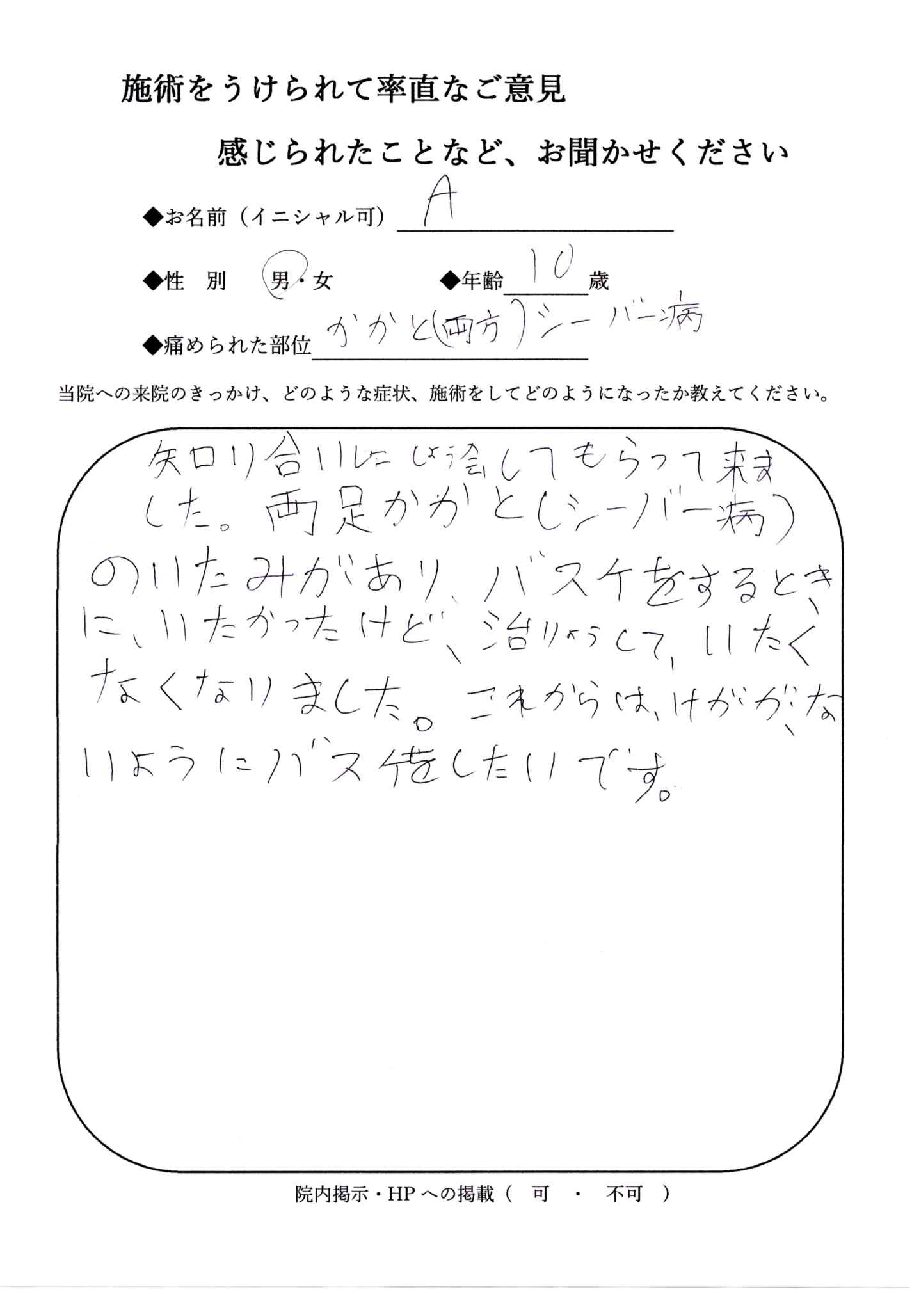 施術をうけられて率直なご意見
感じられたことなど、お聞かせください
◆お名前（イニシャル可） A
◆性 別 男・女 ◆年齢 10 歳
◆痛められた部位 かかと(両方)シーバー病
当院への来院のきっかけ、どのような症状、施術をしてどのようになったか教えてください。
知り合いにしょう会してもらって来ま
した。両足かかと(シーバー病)
のいたみがあり、バスケをするとき
に、いたかったけど、治りょうして、いたく
なくなりました。これからは、けがが、な
いようにバスケをしたいです。
院内掲示・HPへの掲載（ 可 ・ 不可 ）